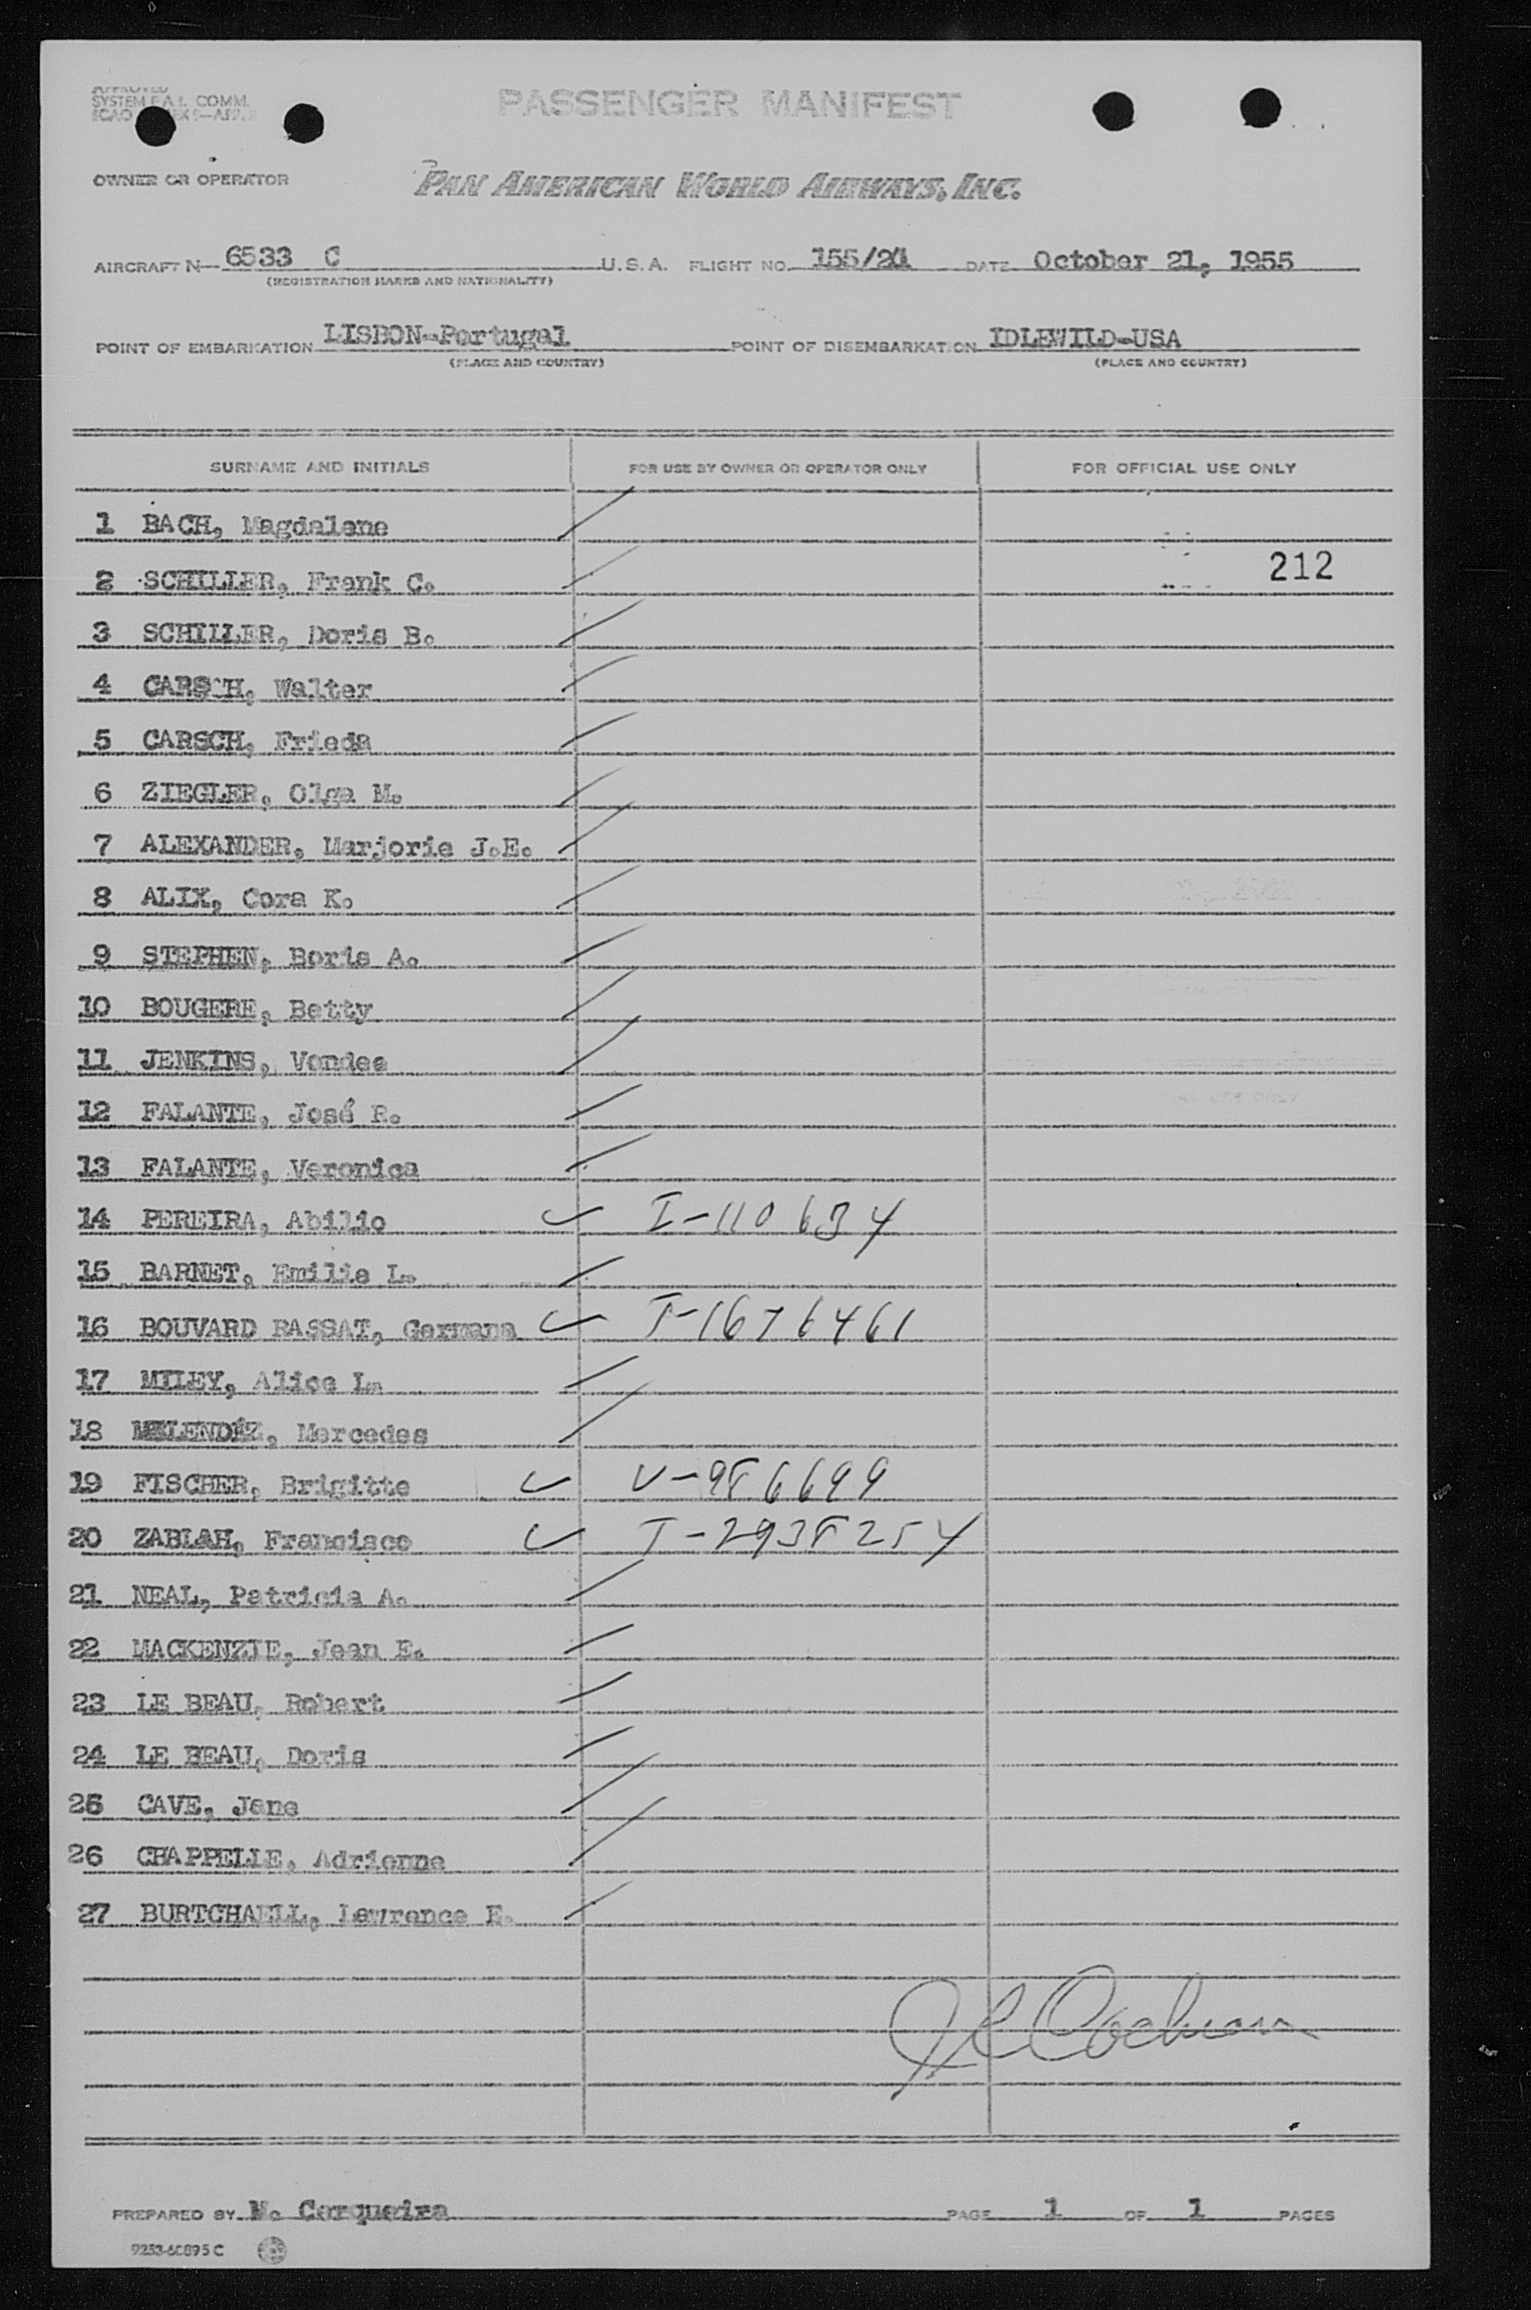 APPROVED
SYSTEM F.A.L. COMM.
ICAO
PASSENGER MANIFEST
OWNER OR OPERATOR PAN AMERICAN WORLD AIRWAYS, INC.
AIRCRAFT N 6533 C U.S.A. FLIGHT NO. 155/ DATE October 21, 1955
(REGISTRATION MARKS AND NATIONALITY)
POINT OF EMBARKATION LISBON-Portugal POINT OF DISEMBARKATION IDLEWILD-USA
(PLACE AND COUNTRY) (PLACE AND COUNTRY)
SURNAME AND INITIALS FOR USE BY OWNER OR OPERATOR ONLY FOR OFFICIAL USE ONLY
1 BACH, Magdalene
2 SCHILLER, Frank C. 212
3 SCHILLER, Doris B.
4 CARSCH, Walter
5 CARSCH, Frieda
6 ZIEGLER, Olga M.
7 ALEXANDER, Marjorie J.E.
8 ALIX, Cora K.
9 STEPHEN, Boris A.
10 BOUGERE, Betty
11 JENKINS, Vondee
12 FALANTE, José R.
13 FALANTE, Veronica
14 PEREIRA, Abilio ✓ I-110634
15 BARNET, Emilie L.
16 BOUVARD BASSAT, Germana ✓ I-1676461
17 MILEY, Alice L.
18 MELENDÉZ, Mercedes
19 FISCHER, Brigitte ✓ V-986699
20 ZABLAH, Francisco ✓ I-2938254
21 NEAL, Patricia A.
22 MACKENZIE, Jean E.
23 LE BEAU, Robert
24 LE BEAU, Doris
25 CAVE, Jane
26 CHAPPELLE, Adrienne
27 BURTCHAELL, Lawrence E.
J C Cochran
PREPARED BY M. Cerqueira PAGE 1 OF 1 PAGES
9253-60895 C